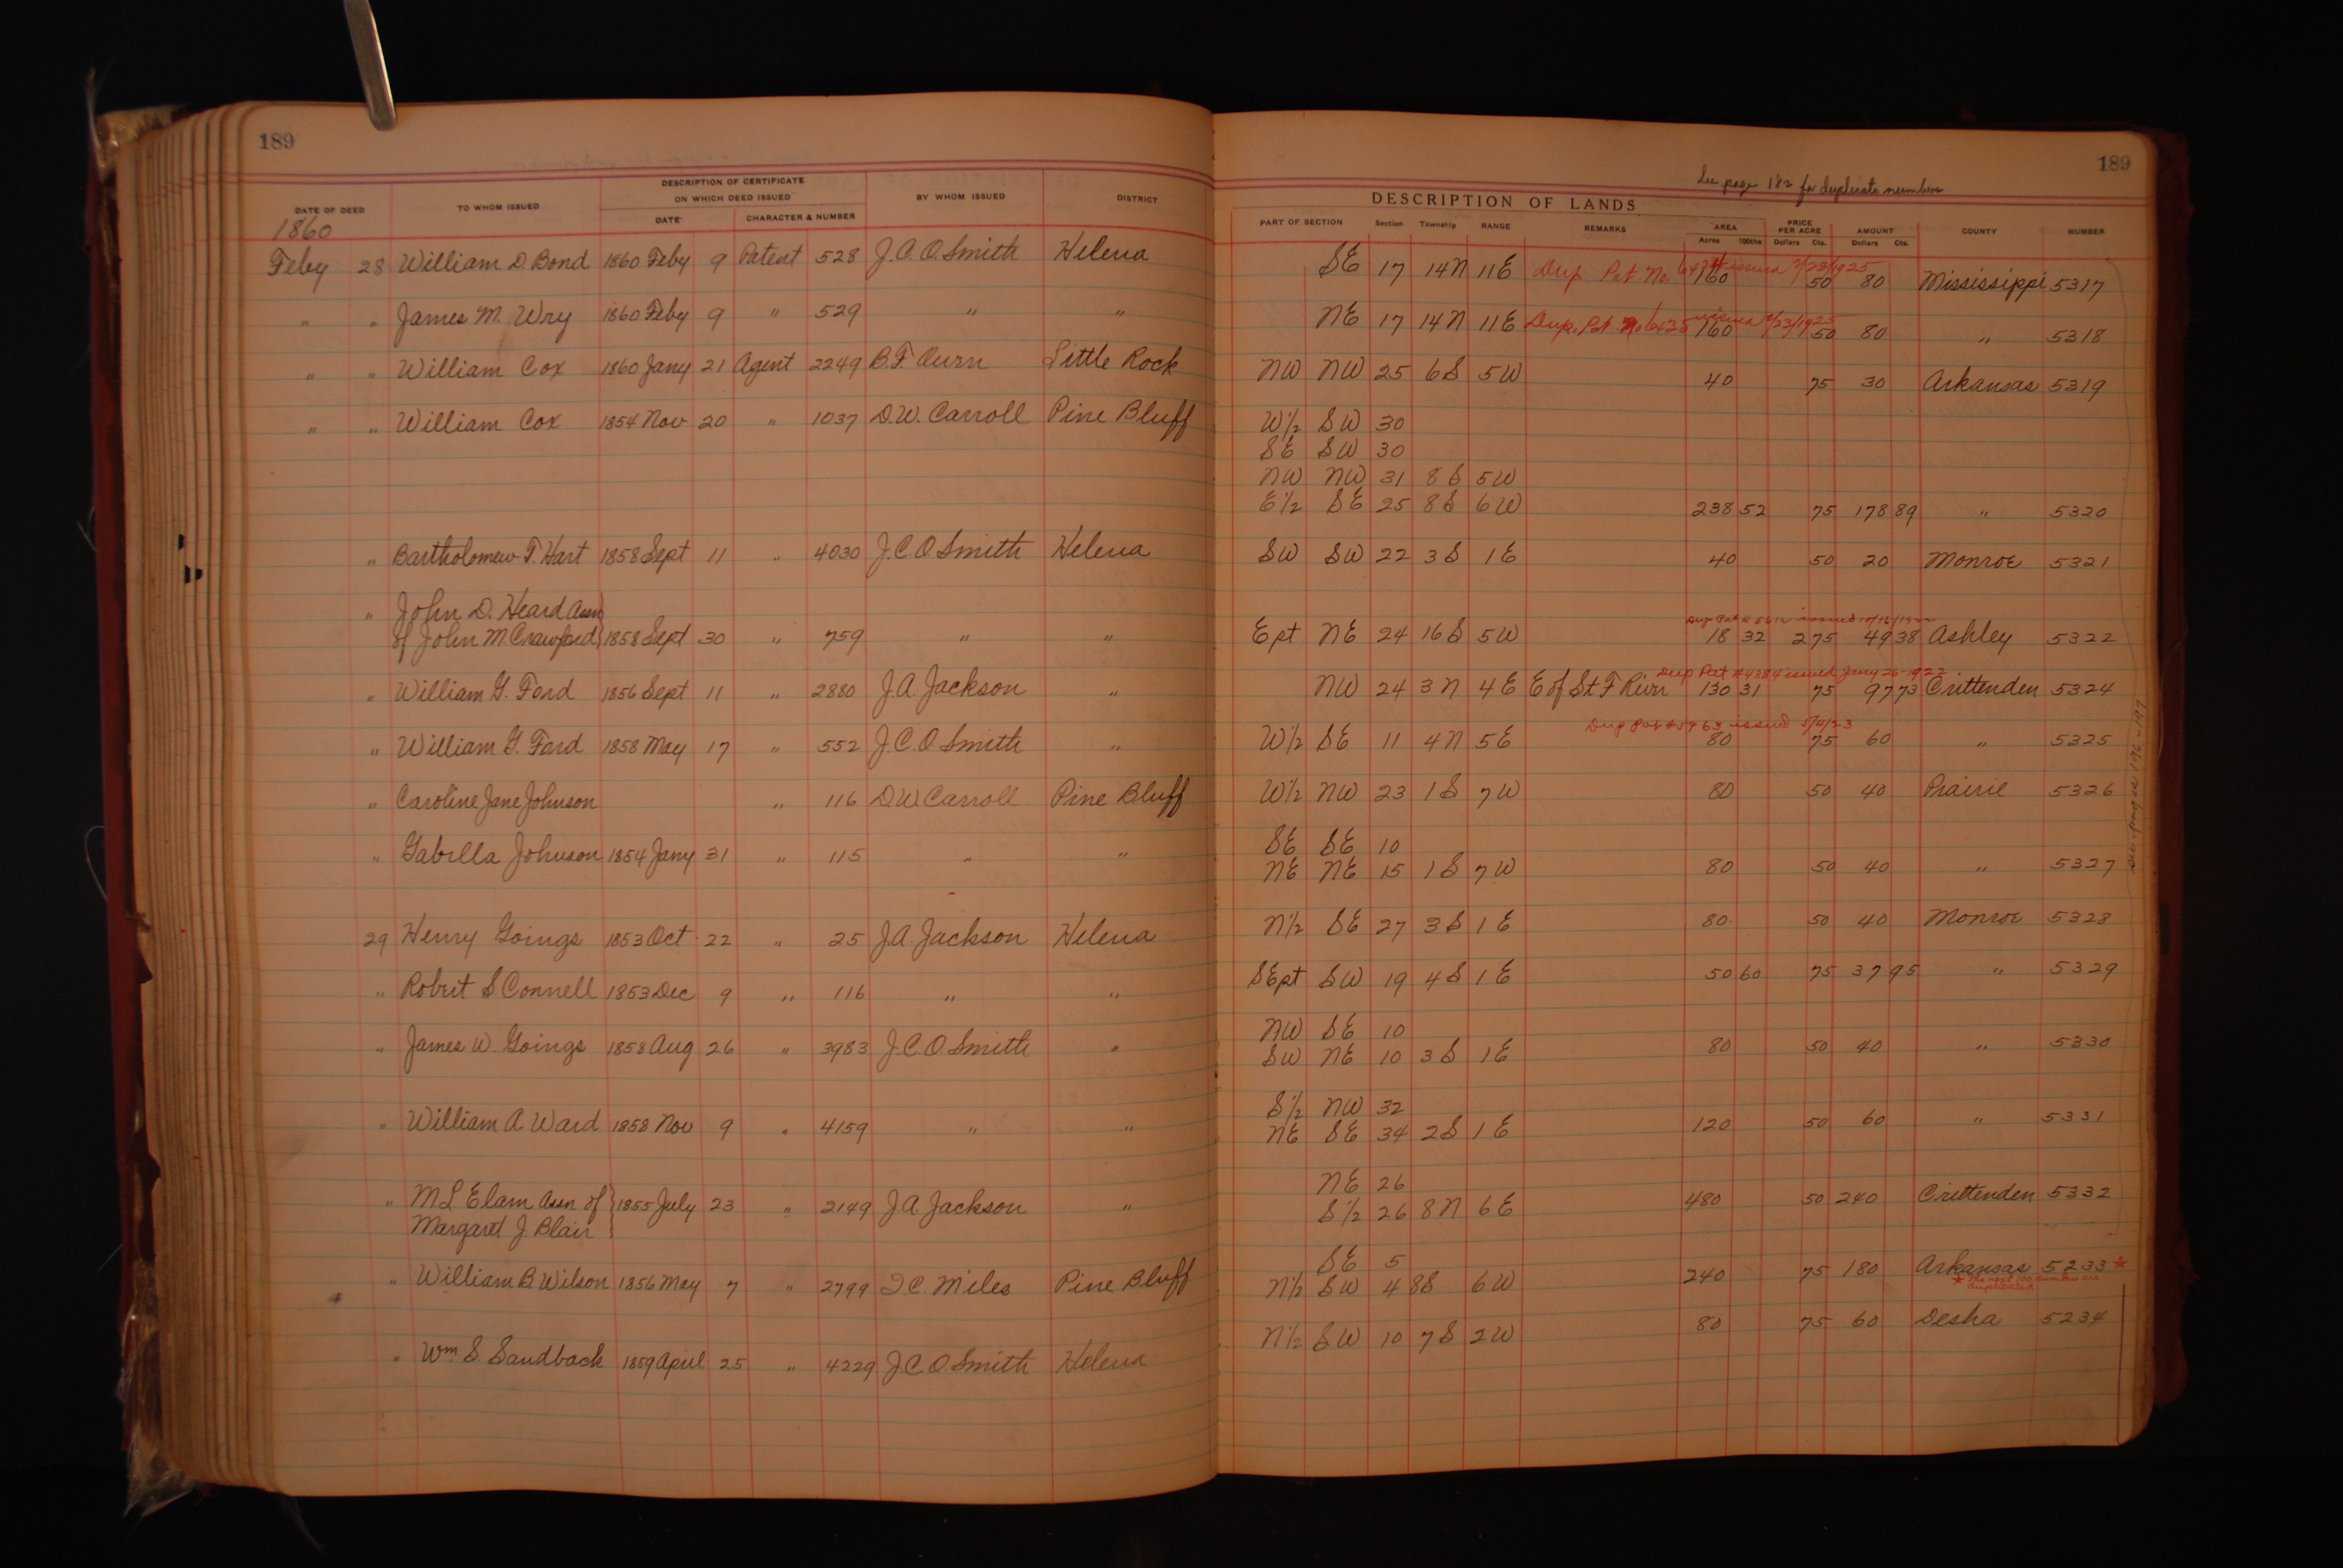 189
DESCRIPTION OF CERTIFICATE
ON WHICH DEED ISSUED
DATE OF DEED TO WHOM ISSUED DATE CHARACTER & NUMBER BY WHOM ISSUED DISTRICT
1860
Feby 28 William D. Bond 1860 Feby 9 Patent 528 J.C.O. Smith Helena
" " James M. Wry 1860 Feby 9 " 529 " "
" " William Cox 1860 Jany 21 Agent 2249 B.F. Little Rock
" " William Cox 1854 Nov 20 " 1037 D.W. Carroll Pine Bluff
" Bartholomew T. Hart 1858 Sept 11 " 4030 J.C.O. Smith Helena
" John D. Heard Assn
of John M Crawford 1858 Sept 30 " 759 " "
" William G. Ford 1856 Sept 11 " 2880 J.A. Jackson "
" William G. Ford 1858 May 17 " 552 J.C.O. Smith "
" Caroline Jane Johnson " 116 D.W. Carroll Pine Bluff
" Gabilla Johnson 1854 Jany 31 " 115 " "
29 Henry Goings 1853 Oct 22 " 25 J.A. Jackson Helena
" Robert S Connell 1853 Dec 9 " 116 " "
" James W. Goings 1858 Aug 26 " 3983 J.C.O. Smith "
" William A Ward 1858 Nov 9 " 4159 " "
" M L Elam Assn of } 1855 July 23 " 2149 J.A. Jackson "
Margaret J. Blair
" William B. Wilson 1856 May 7 " 2799 I.C. Miles Pine Bluff
" Wm S. Sandback 1859 April 25 " 4229 J.C.O. Smith Helena
189
See page 182 for duplicate numbers
DESCRIPTION OF LANDS
PART OF SECTION Section Township RANGE REMARKS AREA PRICE PER ACRE AMOUNT COUNTY NUMBER
Acres 100ths Dollars Cts. Dollars Cts.
SE 17 14N 11E Dup Pat No. 6434 issued 7/23/1925 160 50 80 Mississippi 5317
NE 17 14N 11E Dup. Pat No 6435 issued 7/23/1925 160 50 80 " 5318
NW NW 25 6S 5W 40 75 30 Arkansas 5319
W1/2 SW 30
SE SW 30
NW NW 31 8S 5W
E1/2 SE 25 8S 6W 238 52 75 178 89 " 5320
SW SW 22 3S 1E 40 50 20 Monroe 5321
Dup Pat # issued
E pt NE 24 16S 5W 18 32 2 75 49 38 Ashley 5322
Dup Pat #4384 issued Jany 26-1922
NW 24 3N 4E E of St F River 130 31 75 97 73 Crittenden 5324
Dup Pat issued
W1/2 SE 11 4N 5E 80 75 60 " 5325
W1/2 NW 23 1S 7W 80 50 40 Prairie 5326
SE SE 10
NE NE 15 1S 7W 80 50 40 " 5327
N1/2 SE 27 3S 1E 80 50 40 Monroe 5328
SE pt SW 19 4S 1E 50 60 75 37 95 " 5329
NW SE 10
SW NE 10 3S 1E 80 50 40 " 5330
S1/2 NW 32
NE SE 34 2S 1E 120 50 60 " 5331
NE 26
S1/2 26 8N 6E 480 50 240 Crittenden 5332
SE 5
N1/2 SW 4 8S 6W 240 75 180 Arkansas 5233 *
* The next 100 numbers are
duplicated
N1/2 SW 10 7S 2W 80 75 60 Desha 5234
See page 196-197